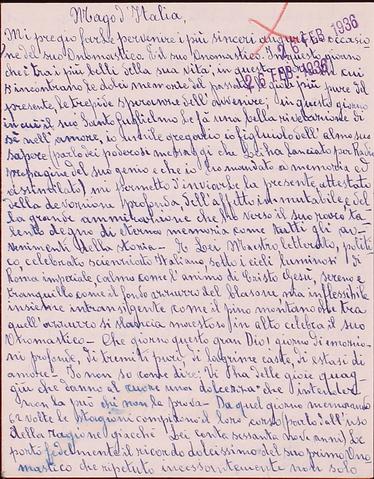 Mago d'Italia,
26 FEB 1936
Mi pregio farle pervenire i più sinceri auguri in occasio-
ne del suo Onomastico. È il suo Onomastico. In questo giorno
che tra i più belli della sua vita, in questo giorno in cui
26 FEB 1936
s'incontrano le dolci memorie del passato, le gioie più pure del
presente, le trepide sporavore dell'avvenire; in questo giorno
in cui il suo Santo Guglielmo Le fa una bella rivelazione di
sè nell'amore, io umile gregario e figliuolo dell'almo suo
sapore (parlo dei poderosi messaggi che Lei ha lanciato per Radio
propaggine del suo genio e che io ho mandato a memoria ed
assimilato) mi permetto d'inviarle la presente, attestato
della devozione profonda, dell'affetto immutabile e del
la grande ammirazione che ho verso il suo raro ta-
lento degno di eterna memoria come tutti gli av-
venimenti della storia. - È Lei Mastro letterato, politi-
co, celebrato scienziato Italiano, sotto i cieli luminosi di
Roma imperiale, calmo come l'animo di Cristo Gesù, sereno e
tranquillo come il fondo azzurro del blasone, ma inflessibile
insieme intransigente come il pino montano che tra
quell'azzurro si slancia maestoso in alto celebra il suo
Onomastico - Che giorno questo gran Dio! giorno di emozio-
ni profonde, di tremiti puri, di lagrime caste, di estasi di
amore - Io non so come dire: Vi ha delle gioie quag-
giù che danno al cuore una dolcezza "che intender
non la può chi non la prova - Da quel giorno memorando
62 volte le stagioni compirono il loro corso (parlo dall'uso
della ragione giacchè Lei conta sessanta nove anni) Le
portò fedelmente il ricordo dolcissimo del suo primo Ono-
mastico che ripetuto incessantemente non solo